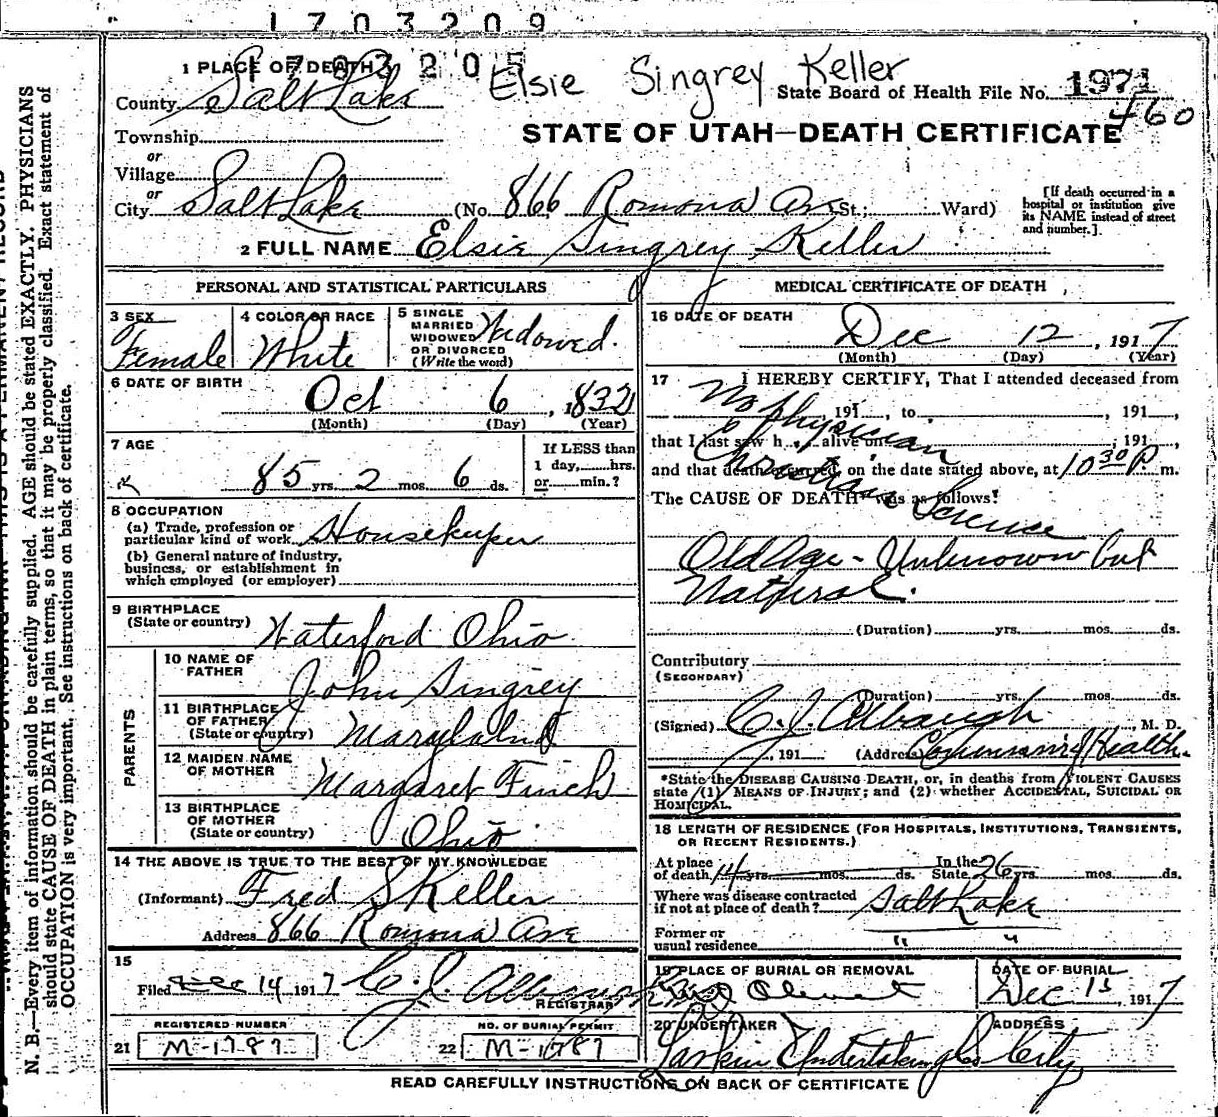 1703209
1 PLACE OF DEATH 1703205 Elsie Singrey Keller
County Salt Lake State Board of Health File No. 1971
460
Township
STATE OF UTAH—DEATH CERTIFICATE
or
Village
or
City Salt Lake (No. 866 Romona Ave St.; Ward)
[If death occurred in a hospital or institution give its NAME instead of street and number.]
2 FULL NAME Elsie Singrey Keller
PERSONAL AND STATISTICAL PARTICULARS
3 SEX Female
4 COLOR OR RACE White
5 SINGLE MARRIED WIDOWED OR DIVORCED (Write the word) Widowed.
6 DATE OF BIRTH Oct 6, 1832
(Month) (Day) (Year)
7 AGE
85 yrs. 2 mos. 6 ds.
If LESS than 1 day, hrs. or min.?
8 OCCUPATION
(a) Trade, profession or particular kind of work Housekeeper
(b) General nature of industry, business, or establishment in which employed (or employer)
9 BIRTHPLACE
(State or country) Waterford Ohio
PARENTS
10 NAME OF FATHER John Singrey
11 BIRTHPLACE OF FATHER (State or country) Maryland
12 MAIDEN NAME OF MOTHER Margaret Finch
13 BIRTHPLACE OF MOTHER (State or country) Ohio
14 THE ABOVE IS TRUE TO THE BEST OF MY KNOWLEDGE
(Informant) Fred S Keller
Address 866 Romona Ave
15
Filed Dec 14 1917 C. J. Albaugh
REGISTRAR
REGISTERED NUMBER NO. OF BURIAL PERMIT
21 M-1787 22 M-1787
MEDICAL CERTIFICATE OF DEATH
16 DATE OF DEATH
Dec 12, 1917
(Month) (Day) (Year)
17 I HEREBY CERTIFY, That I attended deceased from
No physician
, 191 , to , 191 ,
that I last saw h alive on , 191 ,
Christian Science
and that death occurred, on the date stated above, at 10 30 P. m.
The CAUSE OF DEATH* was as follows:
Old Age - Unknown but
Natural.
(Duration) yrs. mos. ds.
Contributory
(SECONDARY)
(Duration) yrs. mos. ds.
(Signed) C. J. Albaugh, M. D.
, 191 (Address) Health.
*State the DISEASE CAUSING DEATH, or, in deaths from VIOLENT CAUSES
state (1) MEANS OF INJURY; and (2) whether ACCIDENTAL, SUICIDAL OR
HOMICIDAL.
18 LENGTH OF RESIDENCE (FOR HOSPITALS, INSTITUTIONS, TRANSIENTS,
OR RECENT RESIDENTS.)
At place of death 14 yrs. mos. ds. In the State 26 yrs. mos. ds.
Where was disease contracted if not at place of death? Salt Lake
Former or usual residence " "
19 PLACE OF BURIAL OR REMOVAL Mt Olivet
DATE OF BURIAL Dec 15 1917
20 UNDERTAKER Larkin Undertaking Co
ADDRESS City
READ CAREFULLY INSTRUCTIONS ON BACK OF CERTIFICATE
N. B.—Every item of information should be carefully supplied. AGE should be stated EXACTLY. PHYSICIANS
should state CAUSE OF DEATH in plain terms, so that it may be properly classified. Exact statement of
OCCUPATION is very important. See instructions on back of certificate.